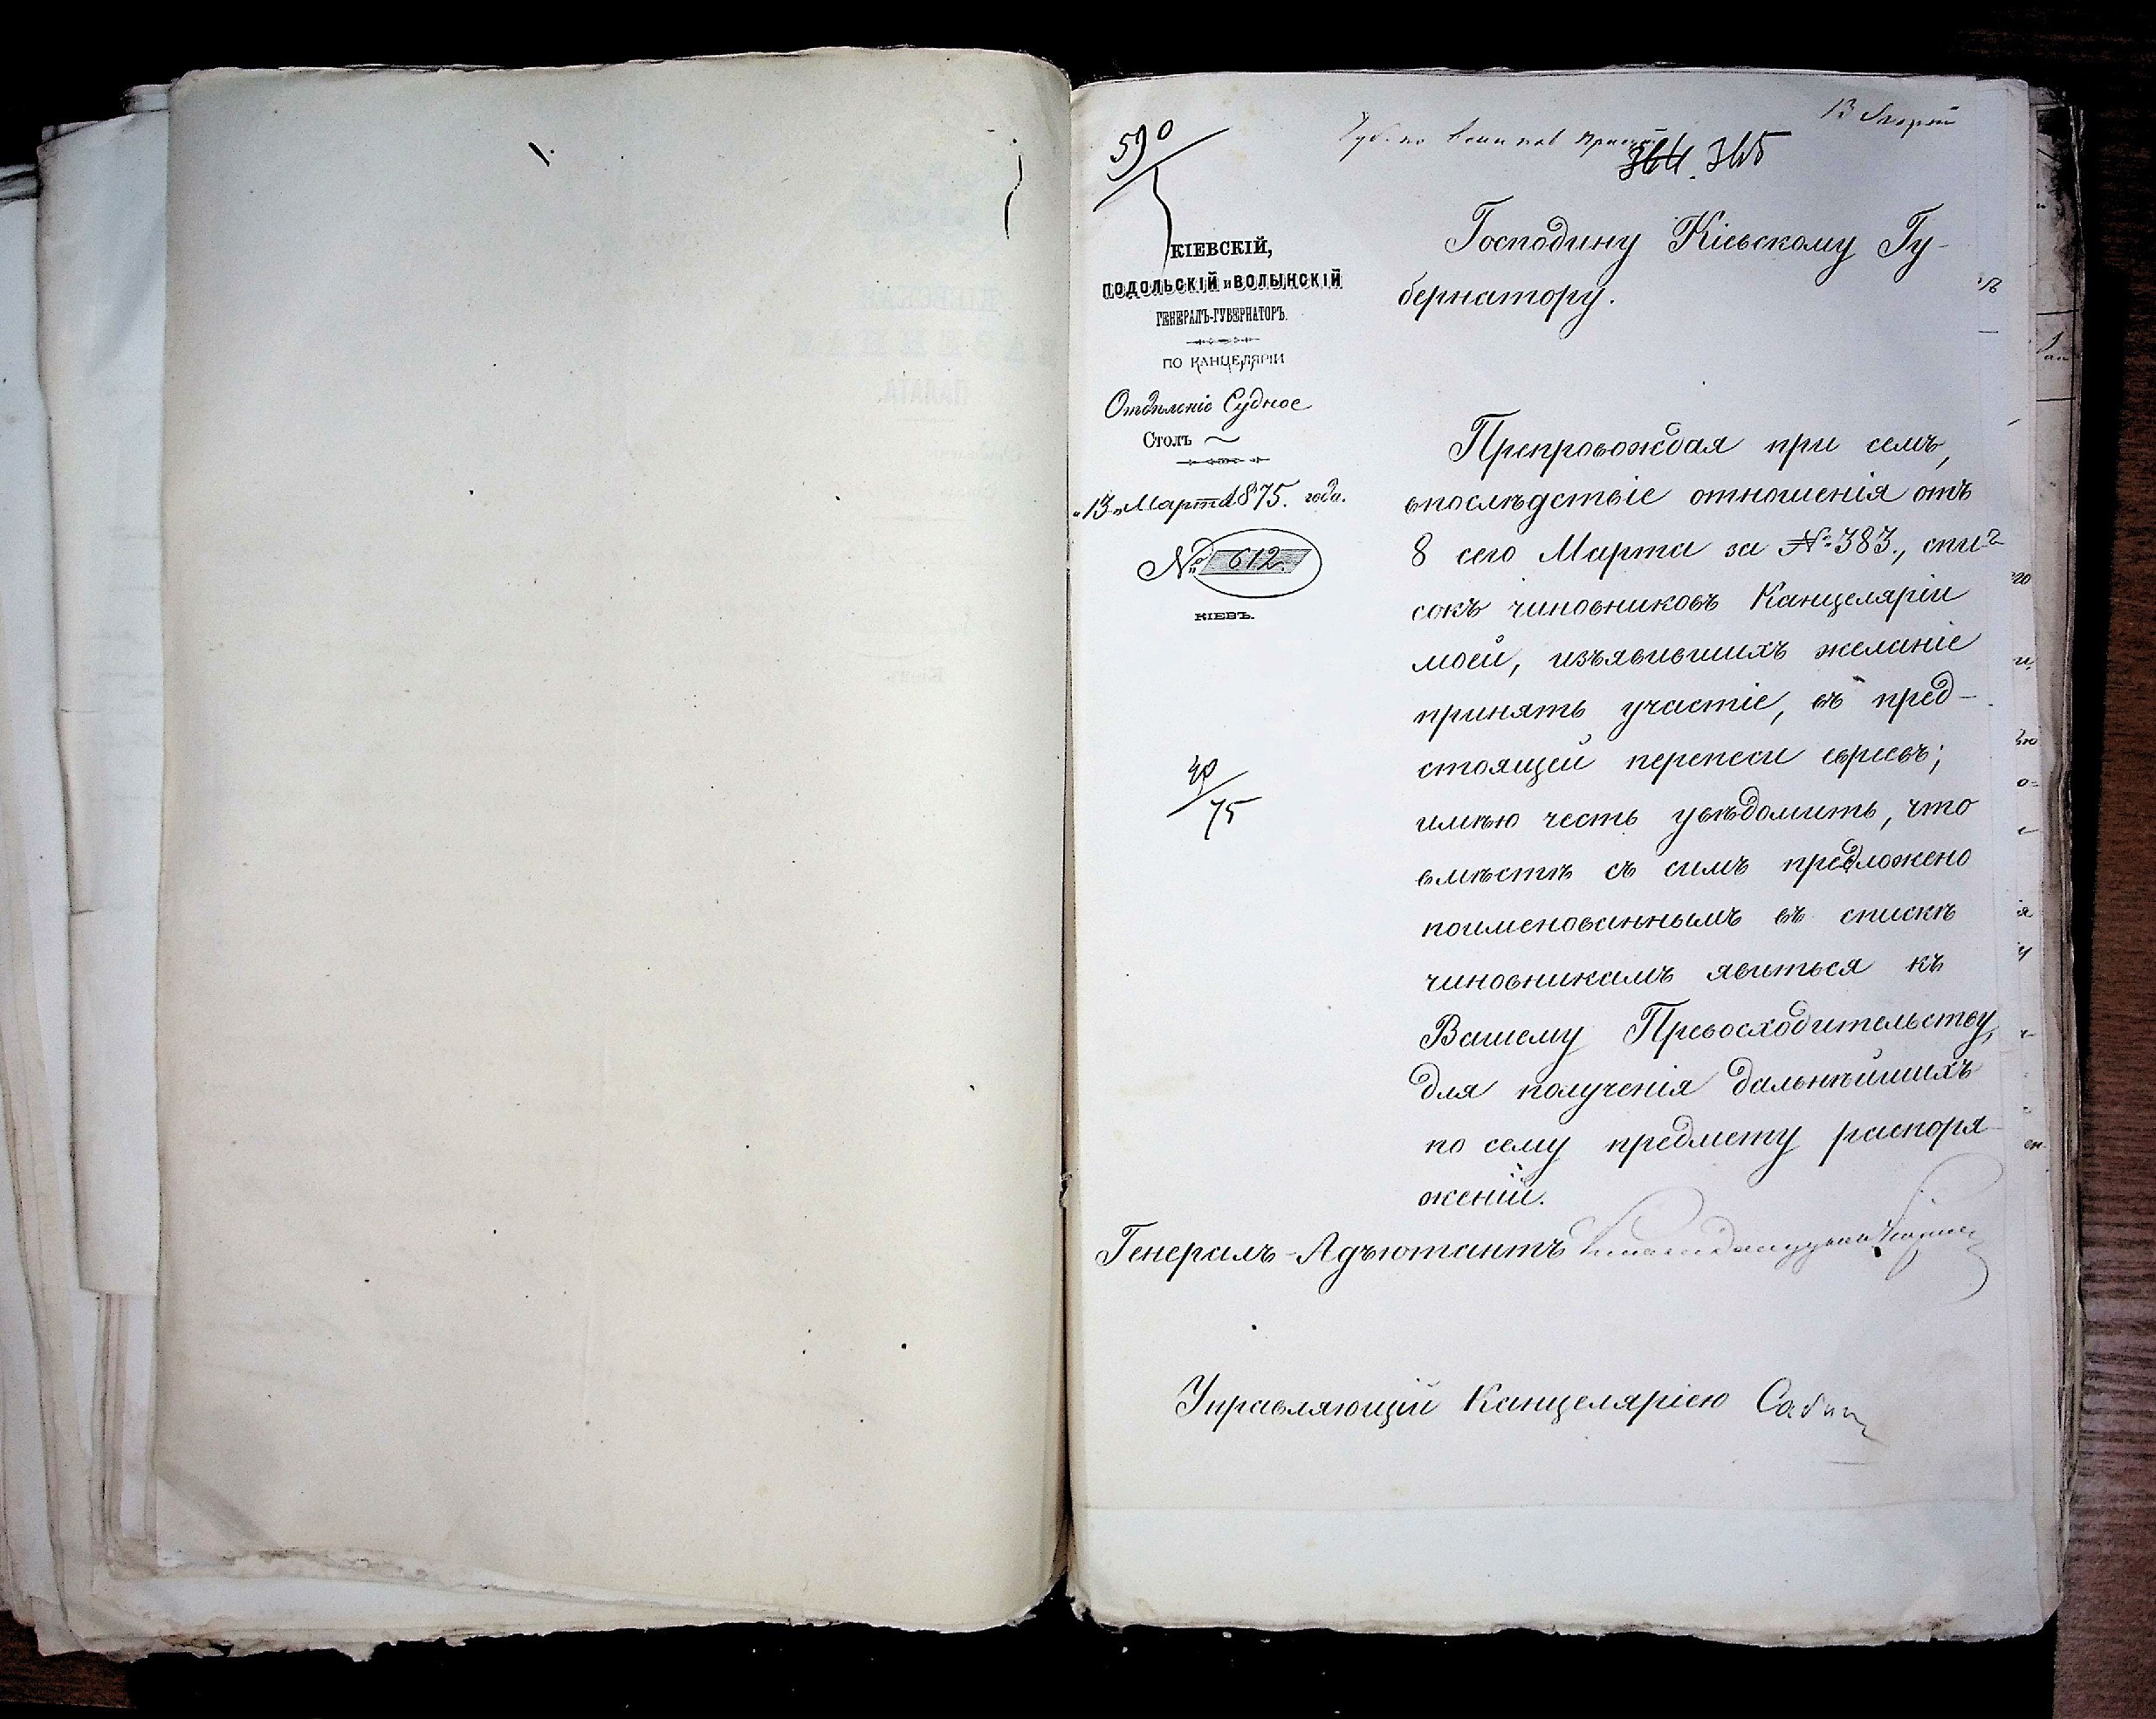 590
13 Марта
Губ. по воинской
364. 365
КІЕВСКІЙ,
ПОДОЛЬСКІЙ и ВОЛЫНСКІЙ
ГЕНЕРАЛЪ-ГУБЕРНАТОРЪ.
ПО КАНЦЕЛЯРІИ
Отдѣленіе Судное
Столъ
"13" Марта 1875. года.
№ 612.
КІЕВЪ.
40/75
Господину Кіевскому Гу-
бернатору.
Препровождая при семъ,
впослѣдствіе отношенія отъ
8 сего Марта за № 383., спи-
сокъ чиновниковъ Канцеляріи
моей, изъявившихъ желаніе
принять участіе, въ пред-
стоящей переписи евреевъ;
имѣю честь увѣдомить, что
вмѣстѣ съ симъ предложено
поименованнымъ въ спискѣ
чиновникамъ явиться къ
Вашему Превосходительству,
для полученія дальнѣйшихъ
по сему предмету распоря-
женій.
Генералъ-Адъютантъ
Управляющій Канцеляріею